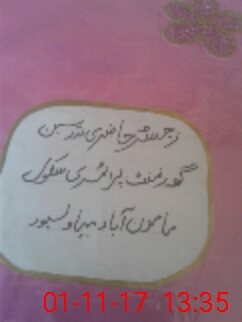 رجسٹر حاضری مدرسین
گورنمنٹ پرائمری سکول
مامون آباد بہاولپور
01-11-17 13:35